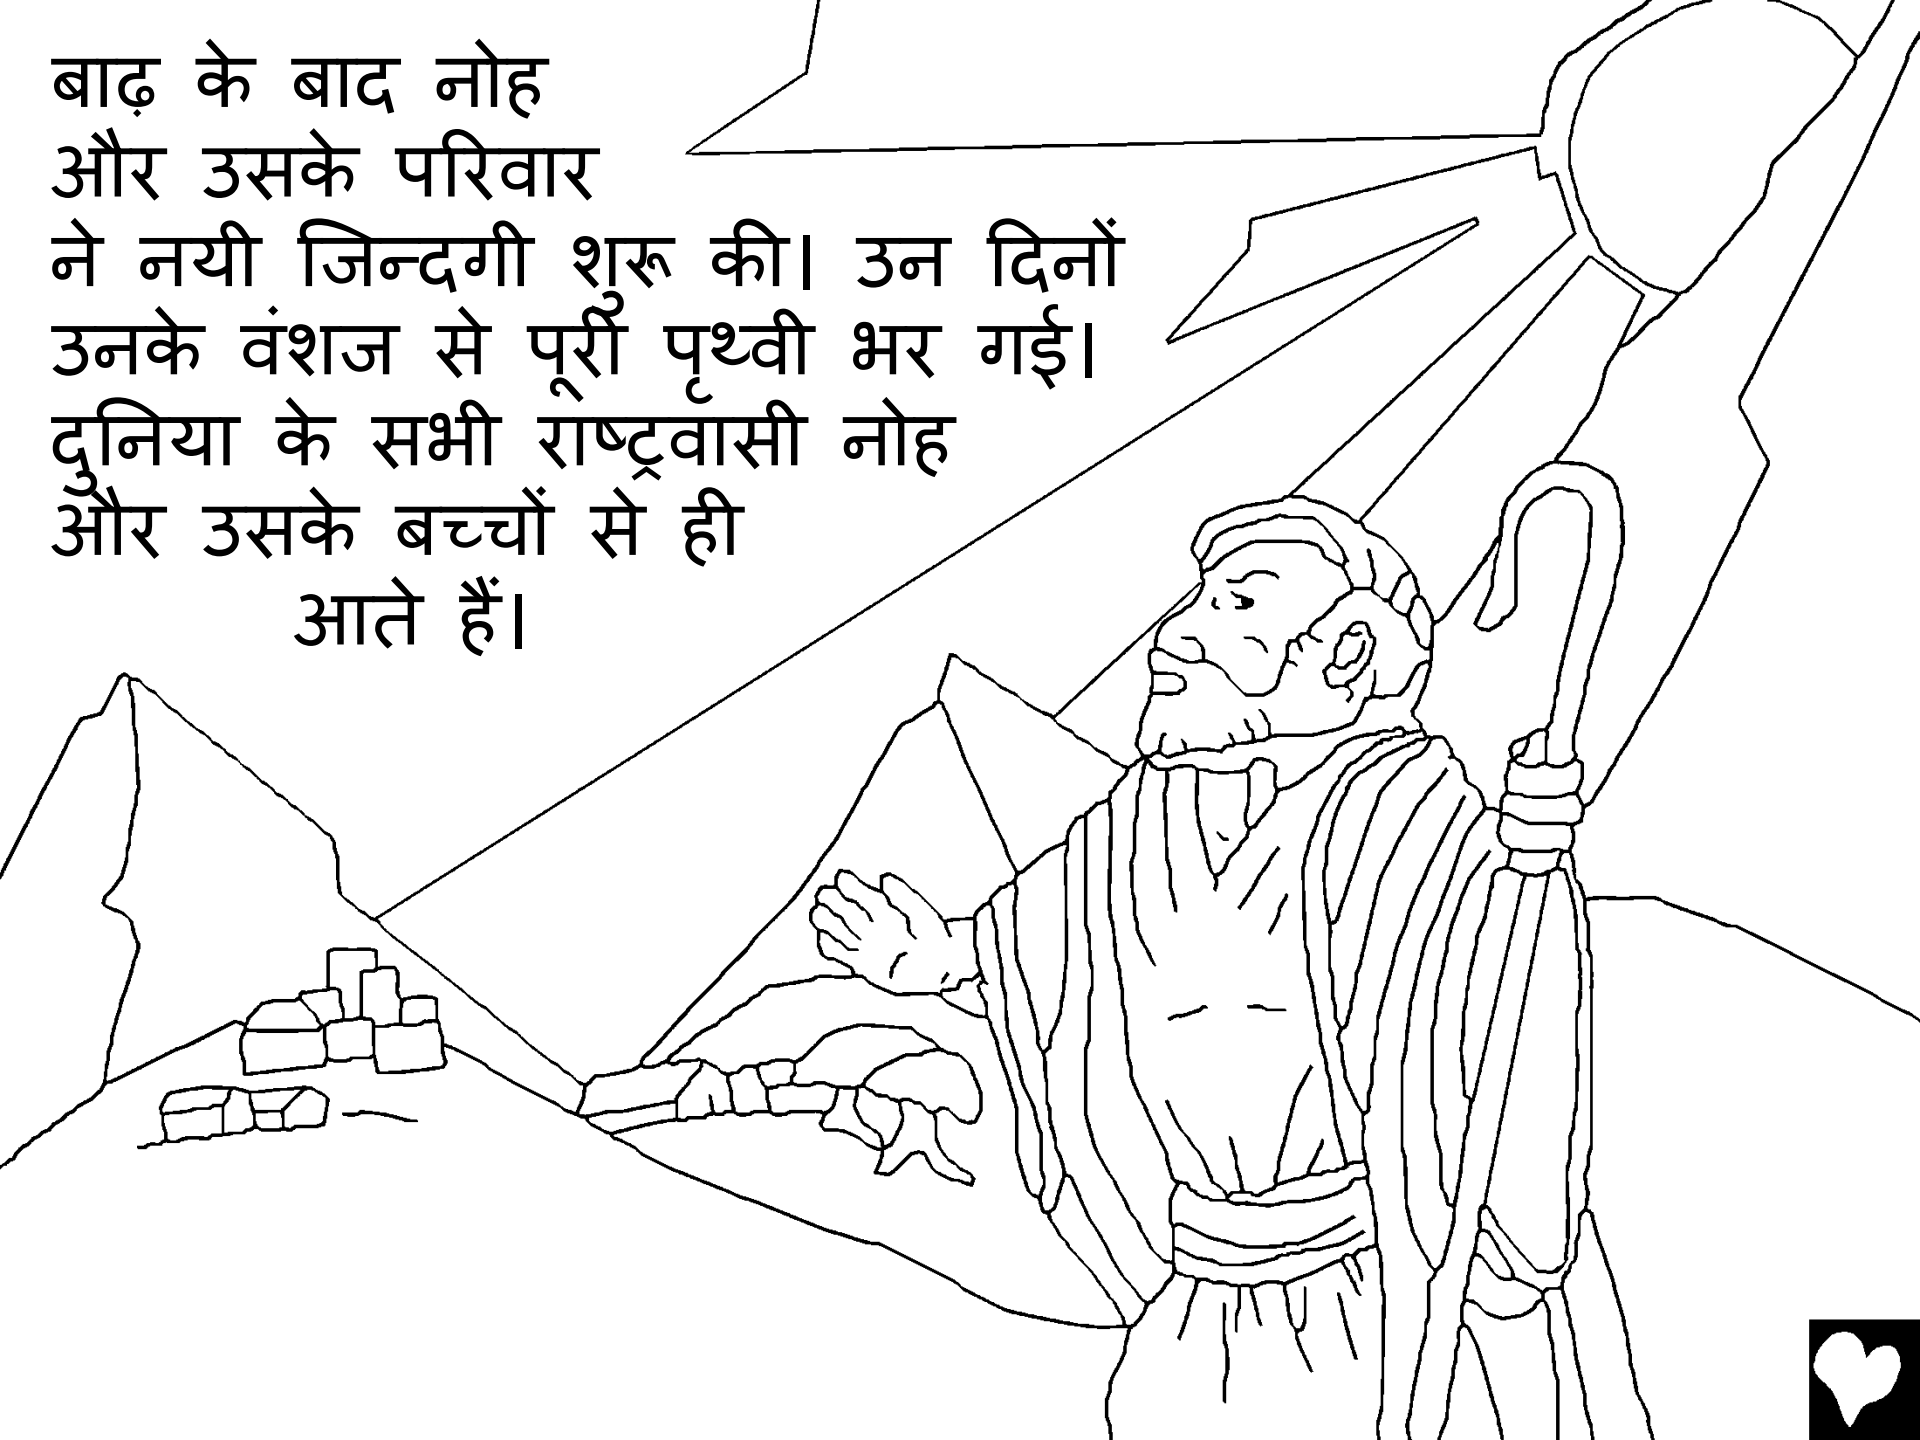 बाढ़ के बाद नोह
और उसके परिवार
ने नयी जिन्दगी शुरू की। उन दिनों
उनके वंशज से पूरी पृथ्वी भर गई।
दुनिया के सभी राष्ट्रवासी नोह
और उसके बच्चों से ही
आते हैं।